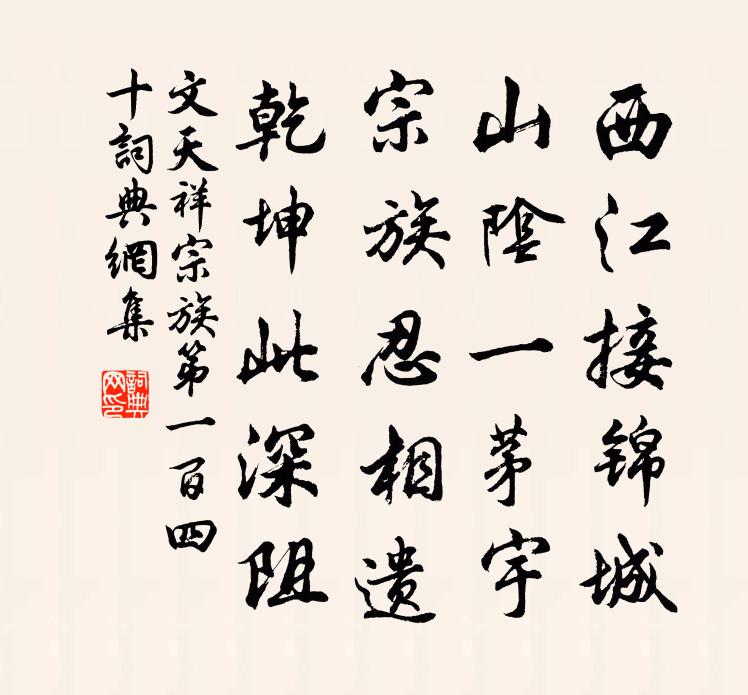 西江接锦城
山陰一茅宇
宗族忍相遗
乾坤此深阻
文天祥宗族第一百四
十詞典網集
詞典
网印